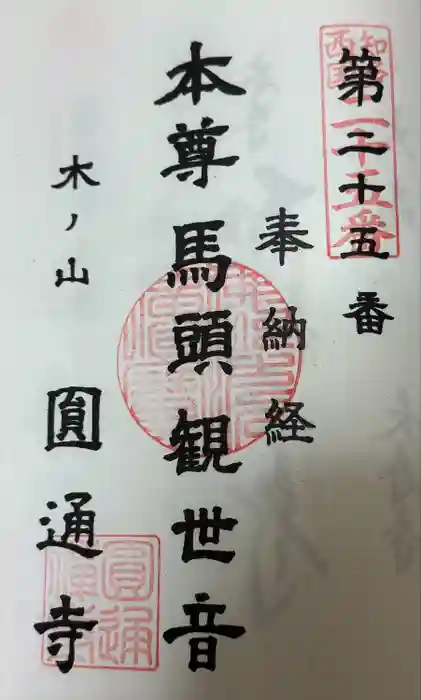 第二十五番
知多
西国
二十五番
奉納経
本尊馬頭観世音
木ノ山
圓通寺
圓通